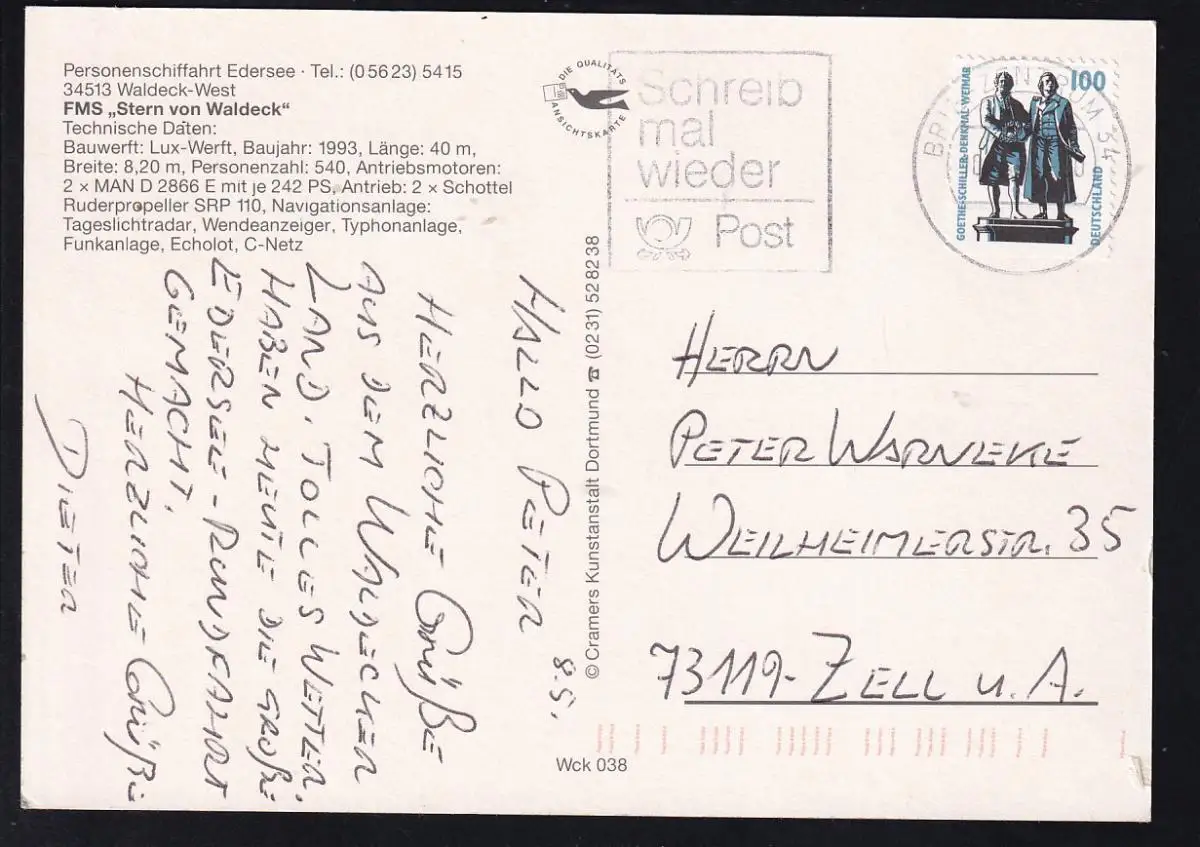 Personenschiffahrt Edersee · Tel.: (0 56 23) 54 15
34513 Waldeck-West
FMS „Stern von Waldeck“
Technische Daten:
Bauwerft: Lux-Werft, Baujahr: 1993, Länge: 40 m,
Breite: 8,20 m, Personenzahl: 540, Antriebsmotoren:
2 × MAN D 2866 E mit je 242 PS, Antrieb: 2 × Schottel
Ruderpropeller SRP 110, Navigationsanlage:
Tageslichtradar, Wendeanzeiger, Typhonanlage,
Funkanlage, Echolot, C-Netz
DIE QUALITÄTS
ANSICHTSKARTE
Schreib
mal
wieder
Post
100
GOETHE-SCHILLER-DENKMAL-WEIMAR
DEUTSCHLAND
BRIEFZENTRUM 34
8.5.
HALLO PETER
HERZLICHE GRÜßE
AUS DEM WALDECKER
LAND. TOLLES WETTER.
HABEN HEUTE DIE GROßE
EDERSEE-RUNDFAHRT
GEMACHT.
HERZLICHE GRÜßE
DIETER
© Cramers Kunstanstalt Dortmund ☎ (02 31) 52 82 38
HERRN
PETER WARNEKE
WEILHEIMERSTR. 35
73119-ZELL U. A.
Wck 038